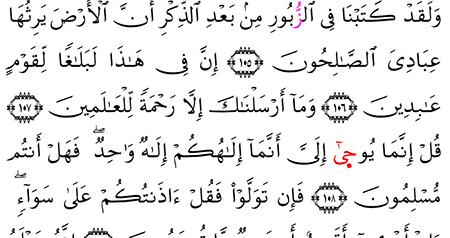 وَلَقَدْ كَتَبْنَا فِى ٱلزَّبُورِ مِنۢ بَعْدِ ٱلذِّكْرِ أَنَّ ٱلْأَرْضَ يَرِثُهَا
عِبَادِىَ ٱلصَّـٰلِحُونَ ١٠٥ إِنَّ فِى هَـٰذَا لَبَلَـٰغًا لِّقَوْمٍ
عَـٰبِدِينَ ١٠٦ وَمَآ أَرْسَلْنَـٰكَ إِلَّا رَحْمَةً لِّلْعَـٰلَمِينَ ١٠٧
قُلْ إِنَّمَا يُوحَىٰٓ إِلَىَّ أَنَّمَآ إِلَـٰهُكُمْ إِلَـٰهٌ وَٰحِدٌ ۖ فَهَلْ أَنتُم
مُّسْلِمُونَ ١٠٨ فَإِن تَوَلَّوْا۟ فَقُلْ ءَاذَنتُكُمْ عَلَىٰ سَوَآءٍ ۖ